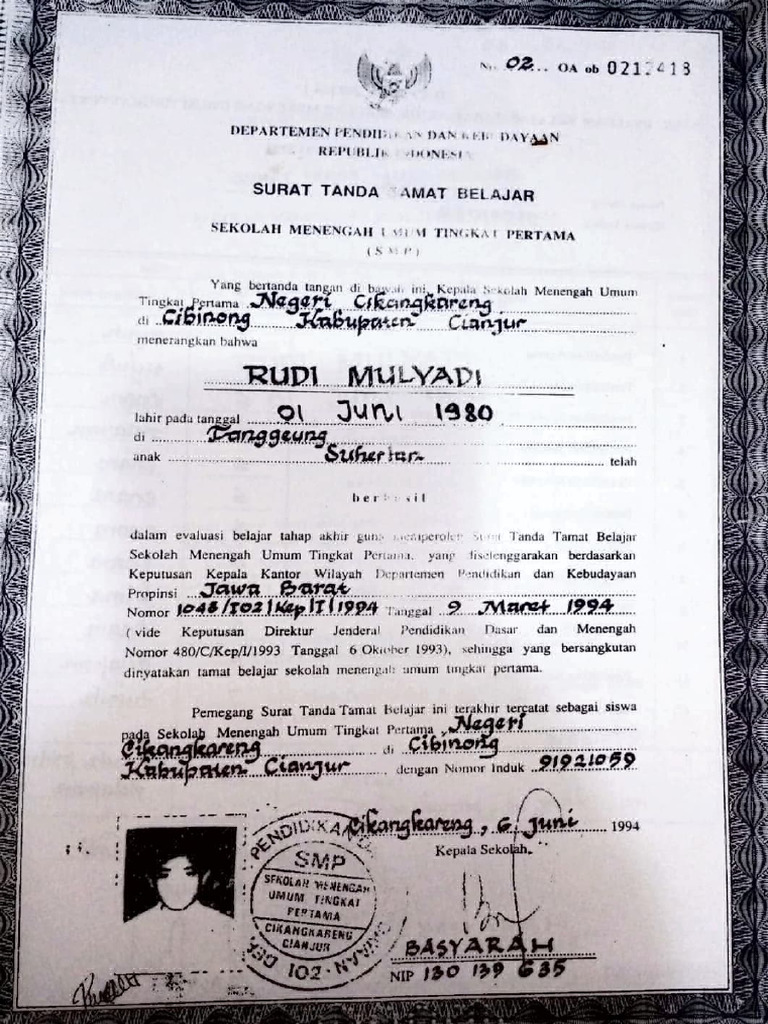 No. 02... OA ob
DEPARTEMEN PENDIDIKAN DAN KEBUDAYAAN
REPUBLIK INDONESIA
SURAT TANDA TAMAT BELAJAR
SEKOLAH MENENGAH UMUM TINGKAT PERTAMA
(SMP)
Yang bertanda tangan di bawah ini, Kepala Sekolah Menengah Umum
Tingkat Pertama Negeri Cikangkareng
di Cibinong Kabupaten Cianjur
menerangkan bahwa
RUDI MULYADI
lahir pada tanggal 01 Juni 1980
di Tanggeung
anak Suherlan telah
berhasil
dalam evaluasi belajar tahap akhir guna memperoleh Surat Tanda Tamat Belajar
Sekolah Menengah Umum Tingkat Pertama, yang diselenggarakan berdasarkan
Keputusan Kepala Kantor Wilayah Departemen Pendidikan dan Kebudayaan
Propinsi Jawa Barat
Nomor 1048/I02/Kep/I/1994 Tanggal 9 Maret 1994
(vide Keputusan Direktur Jenderal Pendidikan Dasar dan Menengah
Nomor 480/C/Kep/I/1993 Tanggal 6 Oktober 1993), sehingga yang bersangkutan
dinyatakan tamat belajar sekolah menengah umum tingkat pertama.
Pemegang Surat Tanda Tamat Belajar ini terakhir tercatat sebagai siswa
pada Sekolah Menengah Umum Tingkat Pertama Negeri
Cikangkareng di Cibinong
Kabupaten Cianjur dengan Nomor Induk 91921059
Cikangkareng, 6 Juni 1994
Kepala Sekolah,
PENDIDIKAN
SMP
SEKOLAH MENENGAH
UMUM TINGKAT
PERTAMA
CIKANGKARENG
CIANJUR
102
BASYARAH
NIP 130 139 635